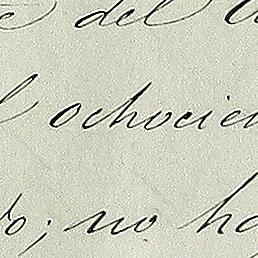 del
ochocien
; no ha